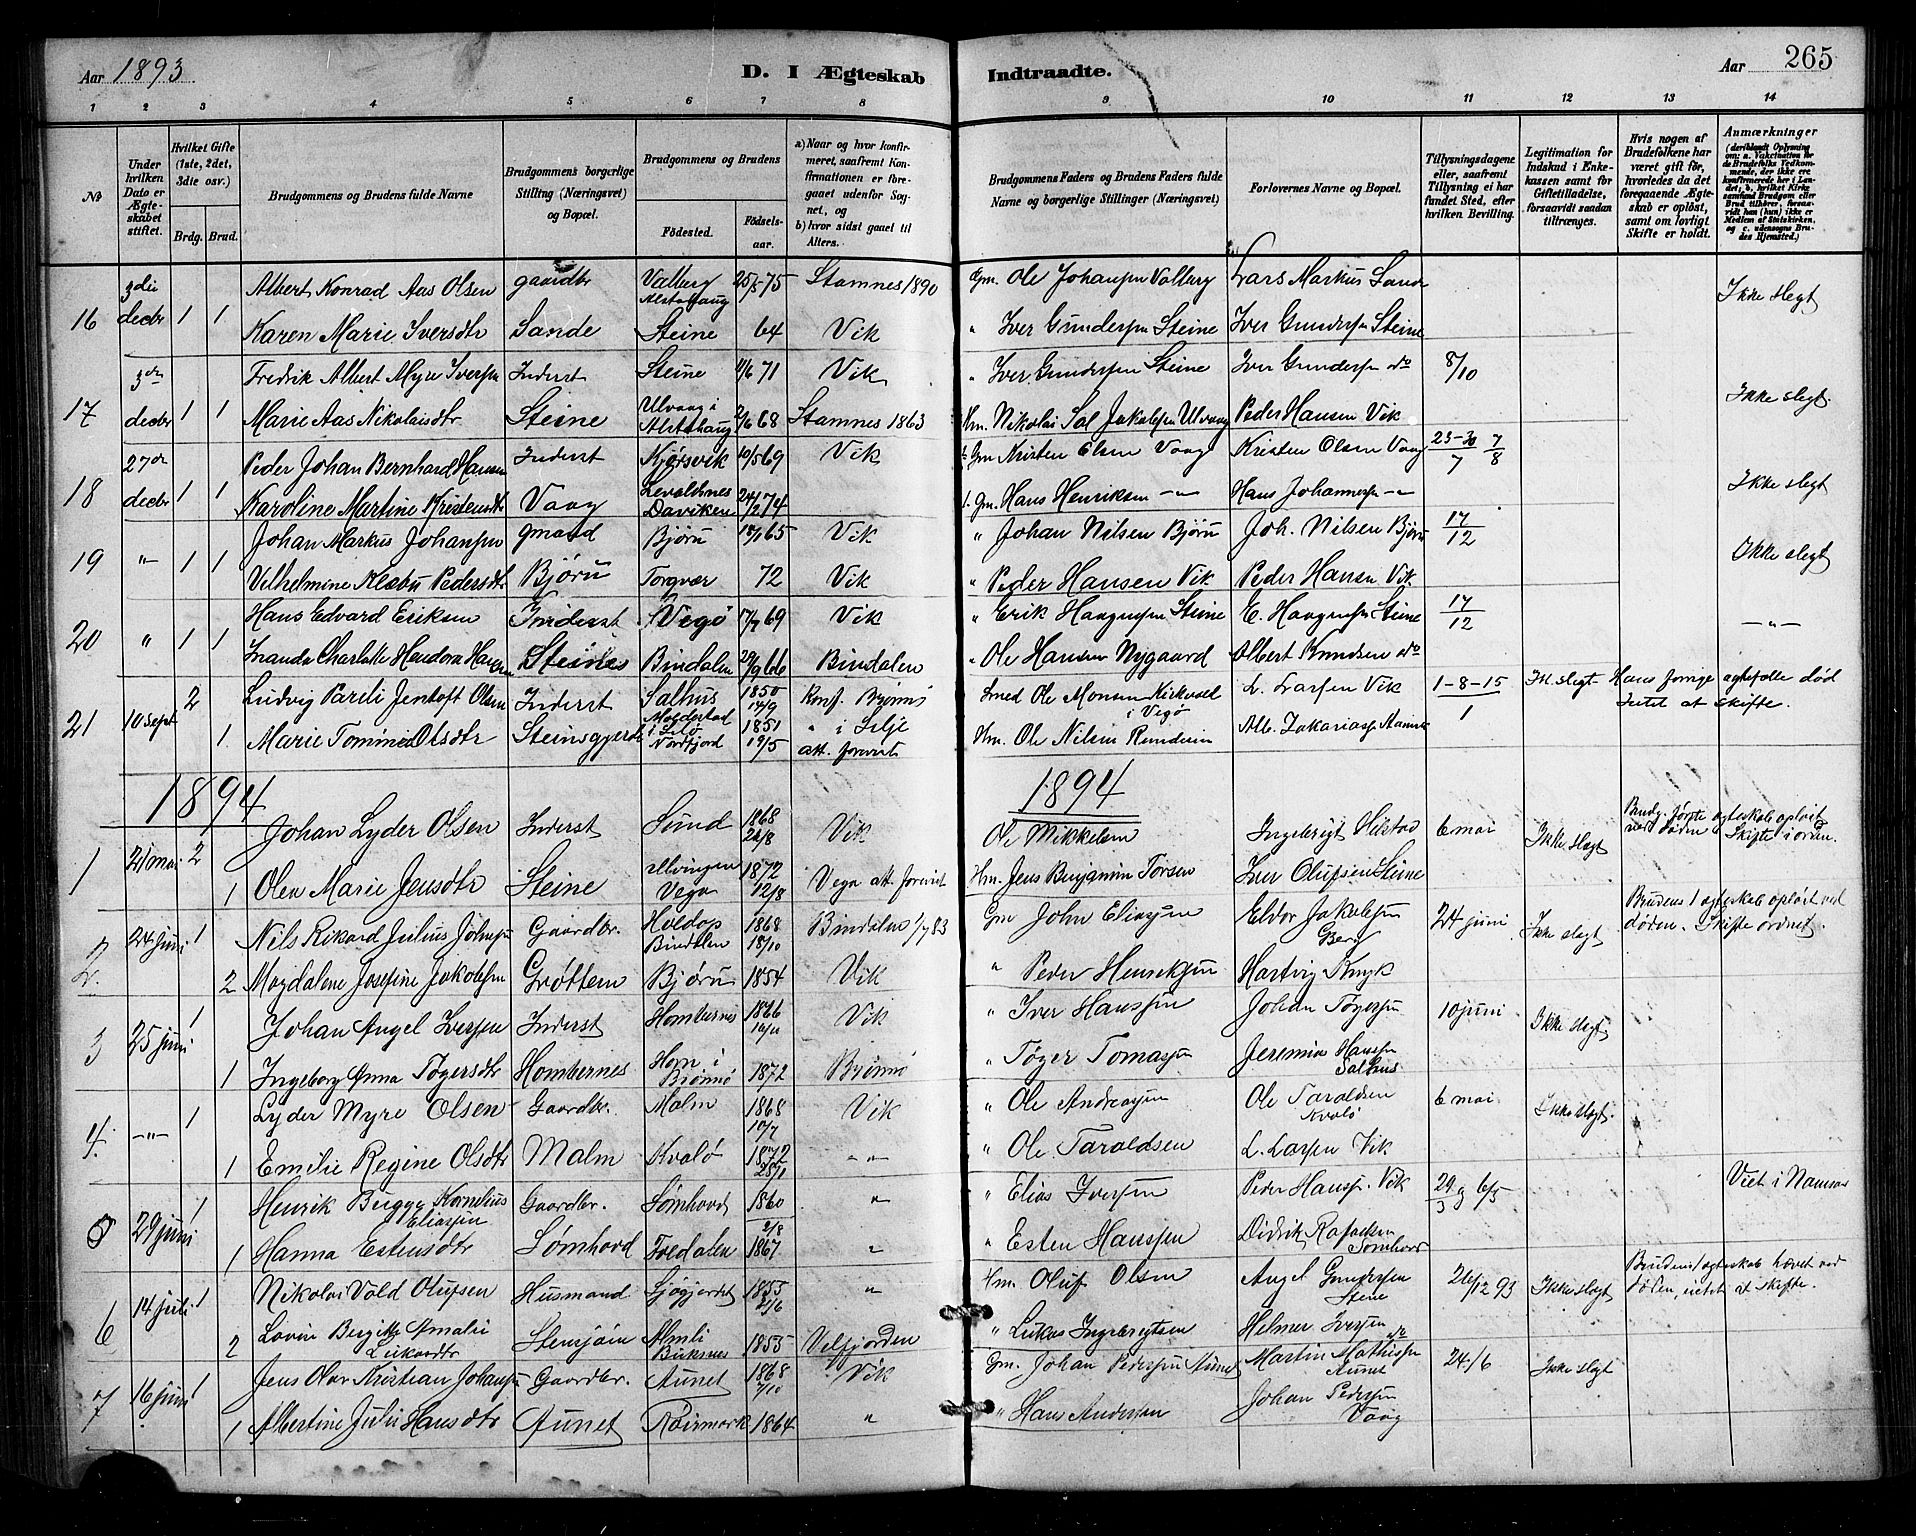 Aar 1893
D. I Ægteskab
Indtraadte.
Aar 265
1 2 3 4 5 6 7 8 9 10 11 12 13 14
No
Under hvilken Dato er Ægteskabet stiftet.
Hvilket Gifte (1ste, 2det, 3die osv.)
Brdg. Brud.
Brudgommens og Brudens fulde Navne
Brudgommens borgerlige Stilling (Næringsvei) og Bopæl.
Brudgommens og Brudens
Fødested. Fødselsaar.
a) Naar og hvor konfirmeret, saafremt Konfirmationen er foregaaet udenfor Sognet, og
b) hvor sidst gaaet til Alters.
Brudgommens Faders og Brudens Faders fulde Navne og borgerlige Stillinger (Næringsvei)
Forlovernes Navne og Bopæl.
Tillysningsdagene eller, saafremt Tillysning ei har fundet Sted, efter hvilken Bevilling.
Legitimation for Indskud i Enkekassen samt for Giftetilladelse, forsaavidt saadan tiltrænges.
Hvis nogen af Brudefolkene har været gift før, hvorledes da det foregaaende Ægteskab er opløst, samt om lovligt Skifte er holdt.
Anmærkninger
16 3die decbr 1 Albert Konrad Aas Olsen gaardbr Valberg Alstahaug 25/5 75 Stamnes 1890 Gm. Ole Johansen Valberg Lars Markus Sande Ikke slegt
1 Karen Marie Iversdtr Sande Steine 64 Vik " Iver Gundersen Steine Iver Gundersen Steine
17 3die decbr 1 Fredrik Albert Myre Iversen Inderst Steine 71 Vik " Iver Gundersen Steine Iver Gundersen do 8/10 Ikke slegt
1 Marie Aas Nikolaisdtr Steine Ulvang i Alstahaug 68 Stamnes 1863 Hm. Nikolai Sal Jakobsen Ulvang Peder Hansen Vik
18 27de decbr 1 Peder Johan Bernhard Hansen Inderst Kjørsvik 10/5 69 Vik Gm Kristen Olsen Vaag Kristen Olsen Vaag 23-30/7 7/8 Ikke slegt
1 Karoline Martine Kristensdtr Vaag Daviken 24/2 74 Gm Hans Henriksen -"- Hans Johannesen -"-
19 -"- 1 Johan Markus Johansen gmand Bjøru 65 Vik " Johan Nilsen Bjøru Joh. Nilsen Bjøru 17/12 Ikke slegt
1 Vilhelmine Klæbu Pedersdtr Bjøru Torgvær 72 Vik " Peder Hansen Vik Peder Hansen Vik
20 " 1 Hans Edvard Eriksen Inderst Vegø 17/7 69 Vik " Erik Haagensen Steine E. Haagensen Steine 17/12 -"-
1 Charlotte Steines Bindalen 29/9 66 Bindalen " Ole Hansen Nygaard Albert Knudsen do
21 10 Sept 2 Ludvig Pareli Jentoft Olsen Inderst Salhus 1850 14/9 Konf. Brønnø Smed Ole Monsen Kirkvold i Vegø L. Larsen Vik 1-8-15/1 Ik. slegt Hans forrige ægtefælle død Intet at skifte.
1. Marie Tomine Olsdtr Steinsgjerde i Selø Nordfjord 1851 19/5 " i Selje att. forevist Hm. Ole Nilsen
1894
1894
1 21 mai 2 Johan Lyder Olsen Inderst Sund 1868 22/8 Vik Ole Mikkelsen Ingebrigt Hilstad 6 mai Ikke slegt Brudg. første ægteskab opløst ved døden Skifte i orden.
1 Olea Marie Jensdtr Steine Ulvingen Vega 1872 12/8 Vega att. forevist Hm. Jens Benjamin Torsen Iver Olufsen Steine
2. 24 juni 1 Nils Rikard Julius Johnsen Gaardbr. Holdop Bindalen 1868 18/10 Bindalen 1/7 83 Gm John Eliassen Eldor Jakobsen Berg 24 juni Ikke slegt Brudens 1 ægteskab opløst ved døden. Skifte ordnet.
2 Magdalene Josefine Jakobsen Grøttem Bjøru 1854 Vik " Peder Henriksen Hartvig Kruyk
3 25 juni 1 Johan Angel Iversen Inderst Hombornes 1866 Vik " Iver Hanssen Johan Tøgersen 10 juni Ikke slegt
1 Ingeborg Anna Tøgersdtr Hombernes Horn i Brønnø 1872 Brønnø " Tøger Tomassen Jeremia Hansen Salhus
4. -"- 1 Lyder Myre Olsen Gaardbr. Malm 1868 10/7 Vik " Ole Andreassen Ole Taraldsen Kvalø 6 mai Ikke slegt
1 Emilie Regine Olsdtr Malm Kvalø 1872 28/1 " " " Ole Taraldsen L. Larsen Vik
5 29 juni 1 Henrik Kornelius Eliassen Gaardbr. Sømhovd 1860 " " Elias Iversen Peder Hansen Vik 29/3 og 6/5 Viet i Namsos
1 Hanna Estensdtr Sømhovd Tredalen 2/8 1867 " " Esten Hanssen Didrik Rafaelsen Sømhovd
6 14 juli 1 Nikolai Vold Olufsen Husmand Sjøgjerdet 1855 " Hm. Oluf Olsen Angel Gundersen Steine 26/12 93 Ikke slegt Brudens 1 ægteskab hævet ved døden, intet at skifte.
2 Bergitte Amalie Lukasdtr Stensjøin Almli 1855 Velfjorden " Lukas Ingebrigtsen Helmer Iversen do
7 16 juni 1 Jens Olar Kristian Johansen Gaardbr. Aunet 1868 Vik Gm. Johan Pedersen Aunet Martin Mathissen Aunet 24/6 Ikke slegt
1 Albertine Juli Hansdtr Aunet Røirmark 1864 " " Hans Andersen Johan Pedersen Vaag